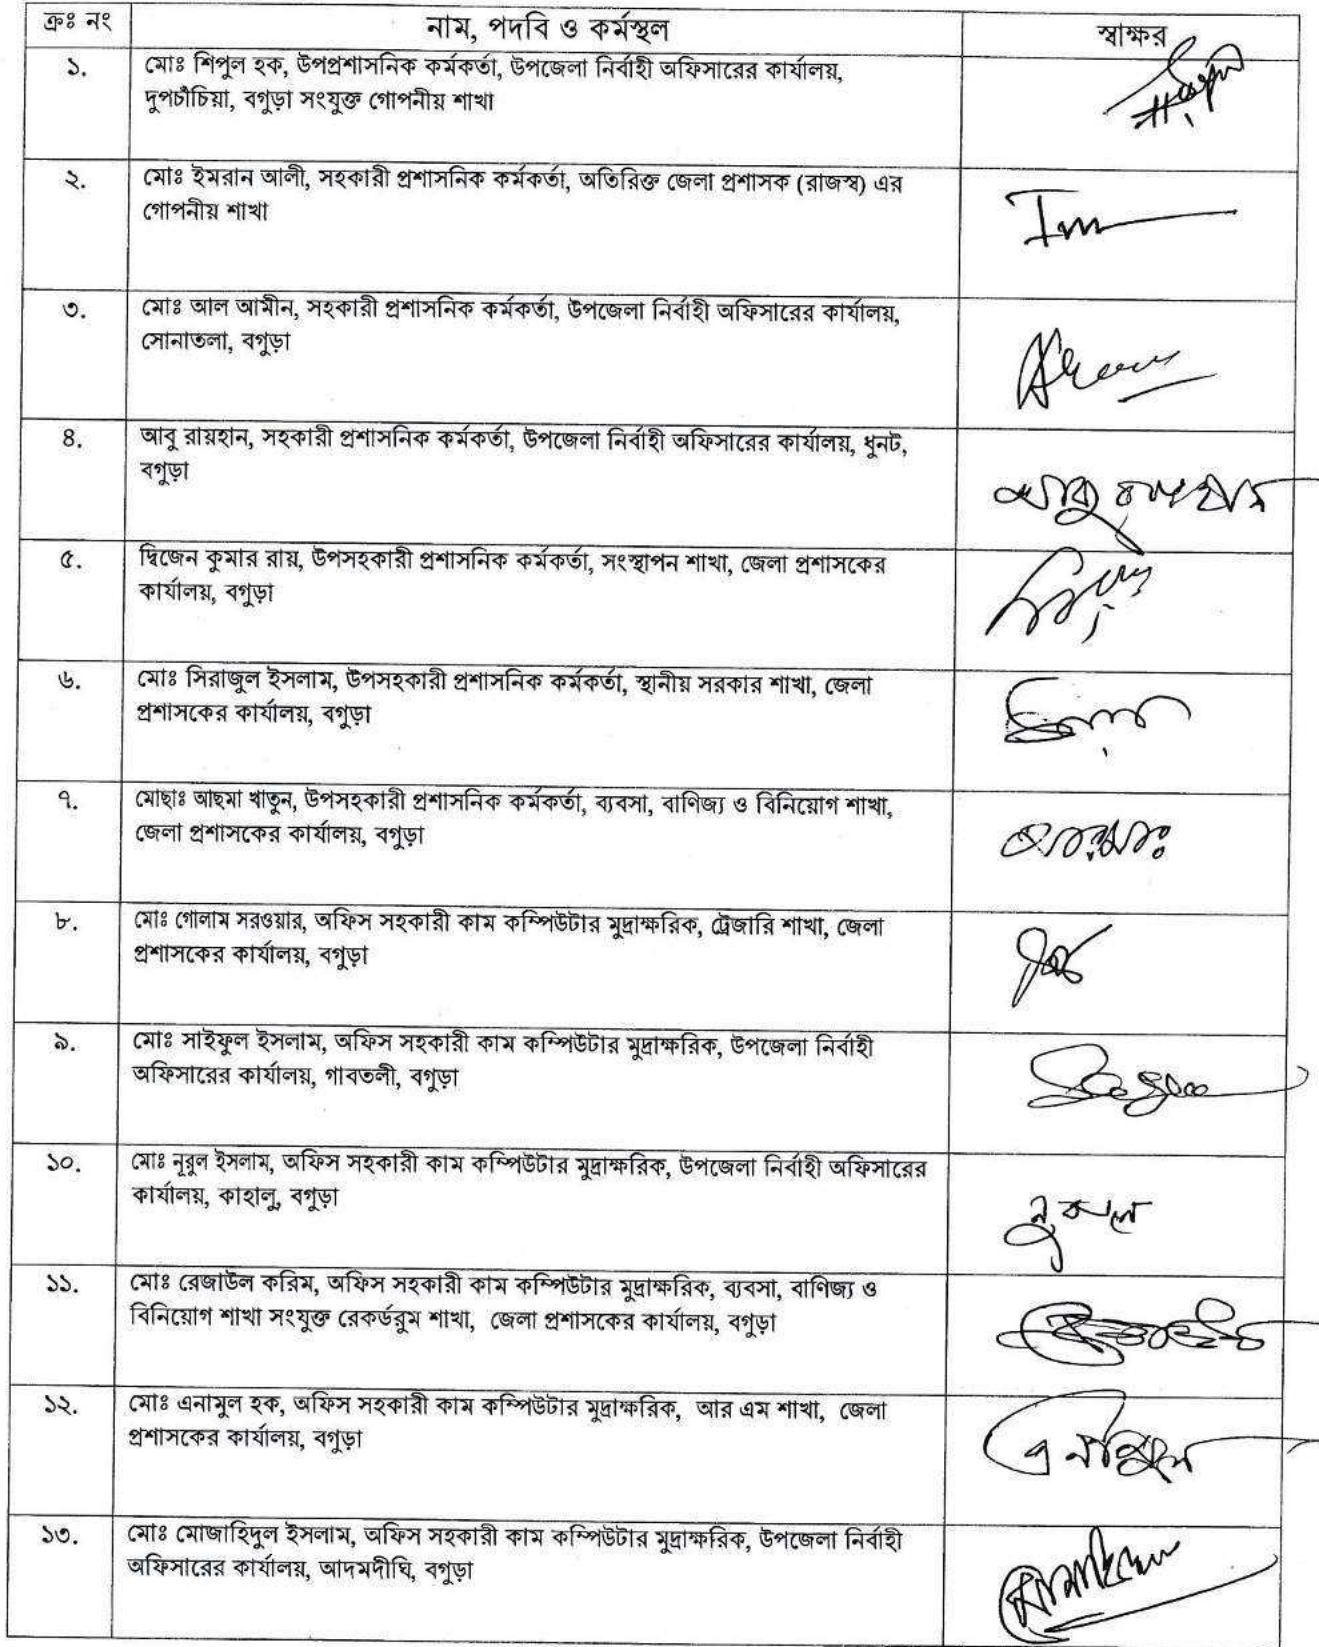 ক্রঃ নং নাম, পদবি ও কর্মস্থল স্বাক্ষর
১. মোঃ শিপুল হক, উপপ্রশাসনিক কর্মকর্তা, উপজেলা নির্বাহী অফিসারের কার্যালয়,
দুপচাঁচিয়া, বগুড়া সংযুক্ত গোপনীয় শাখা
২. মোঃ ইমরান আলী, সহকারী প্রশাসনিক কর্মকর্তা, অতিরিক্ত জেলা প্রশাসক (রাজস্ব) এর
গোপনীয় শাখা
৩. মোঃ আল আমীন, সহকারী প্রশাসনিক কর্মকর্তা, উপজেলা নির্বাহী অফিসারের কার্যালয়,
সোনাতলা, বগুড়া
৪. আবু রায়হান, সহকারী প্রশাসনিক কর্মকর্তা, উপজেলা নির্বাহী অফিসারের কার্যালয়, ধুনট,
বগুড়া
আবু রায়হান
৫. দ্বিজেন কুমার রায়, উপসহকারী প্রশাসনিক কর্মকর্তা, সংস্থাপন শাখা, জেলা প্রশাসকের
কার্যালয়, বগুড়া
৬. মোঃ সিরাজুল ইসলাম, উপসহকারী প্রশাসনিক কর্মকর্তা, স্থানীয় সরকার শাখা, জেলা
প্রশাসকের কার্যালয়, বগুড়া
৭. মোছাঃ আছমা খাতুন, উপসহকারী প্রশাসনিক কর্মকর্তা, ব্যবসা, বাণিজ্য ও বিনিয়োগ শাখা,
জেলা প্রশাসকের কার্যালয়, বগুড়া
৮. মোঃ গোলাম সরওয়ার, অফিস সহকারী কাম কম্পিউটার মুদ্রাক্ষরিক, ট্রেজারি শাখা, জেলা
প্রশাসকের কার্যালয়, বগুড়া
৯. মোঃ সাইফুল ইসলাম, অফিস সহকারী কাম কম্পিউটার মুদ্রাক্ষরিক, উপজেলা নির্বাহী
অফিসারের কার্যালয়, গাবতলী, বগুড়া
১০. মোঃ নূরুল ইসলাম, অফিস সহকারী কাম কম্পিউটার মুদ্রাক্ষরিক, উপজেলা নির্বাহী অফিসারের
কার্যালয়, কাহালু, বগুড়া
১১. মোঃ রেজাউল করিম, অফিস সহকারী কাম কম্পিউটার মুদ্রাক্ষরিক, ব্যবসা, বাণিজ্য ও
বিনিয়োগ শাখা সংযুক্ত রেকর্ডরুম শাখা, জেলা প্রশাসকের কার্যালয়, বগুড়া
১২. মোঃ এনামুল হক, অফিস সহকারী কাম কম্পিউটার মুদ্রাক্ষরিক, আর এম শাখা, জেলা
প্রশাসকের কার্যালয়, বগুড়া
এনামুল
১৩. মোঃ মোজাহিদুল ইসলাম, অফিস সহকারী কাম কম্পিউটার মুদ্রাক্ষরিক, উপজেলা নির্বাহী
অফিসারের কার্যালয়, আদমদীঘি, বগুড়া